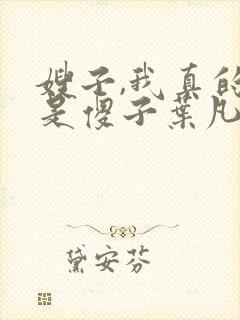 嫂子,我真的
是傻子葉凡
黛安芬